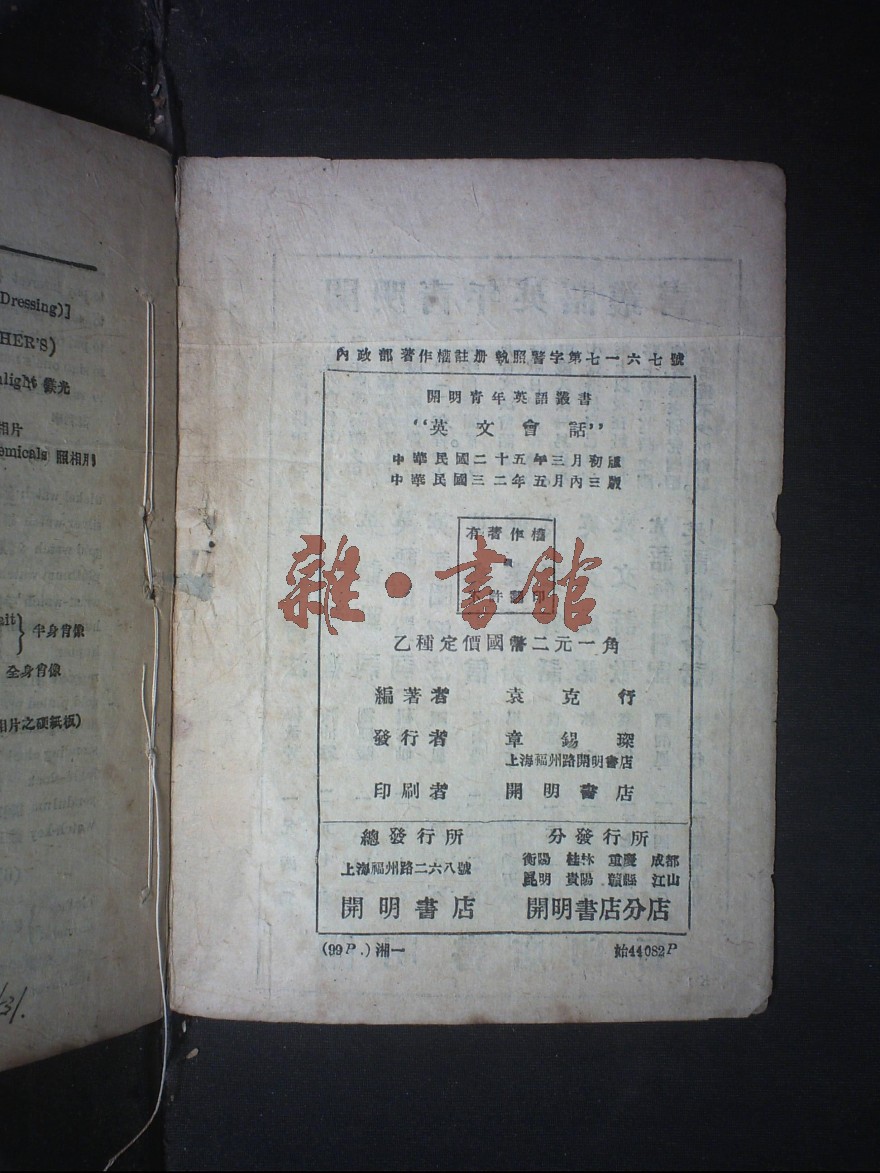 Dressing)]
HER'S)
鎂光
相片
emicals 照相用
半身肖像
全身肖像
相片之硬紙板)
內政部著作權註册執照警字第七一六七號
開明青年英語叢書
“英文會話”
中華民國二十五年三月初版
中華民國三二年五月內三版
有著作權
不許翻印
雜·書館
乙種定價國幣二元一角
編著者 袁克行
發行者 章錫琛
上海福州路開明書店
印刷者 開明書店
總發行所
上海福州路二六八號
開明書店
分發行所
衡陽 桂林 重慶 成都
昆明 貴陽 贛縣 江山
開明書店分店
(99P.)湘一
始44082P